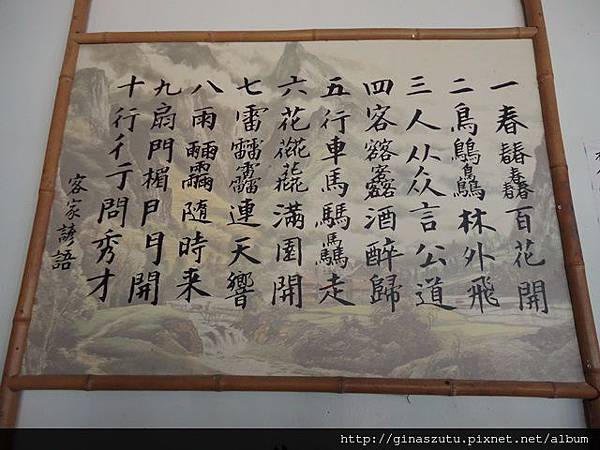 一春百花開
二鳥林外飛
三人从众言公道
四客酒醉歸
五行車馬驫走
六花滿園開
七雷連天響
八雨随時来
九扇門楣開
十行彳亍問秀才
客家諺語
http://ginaszutu.pixnet.net/album